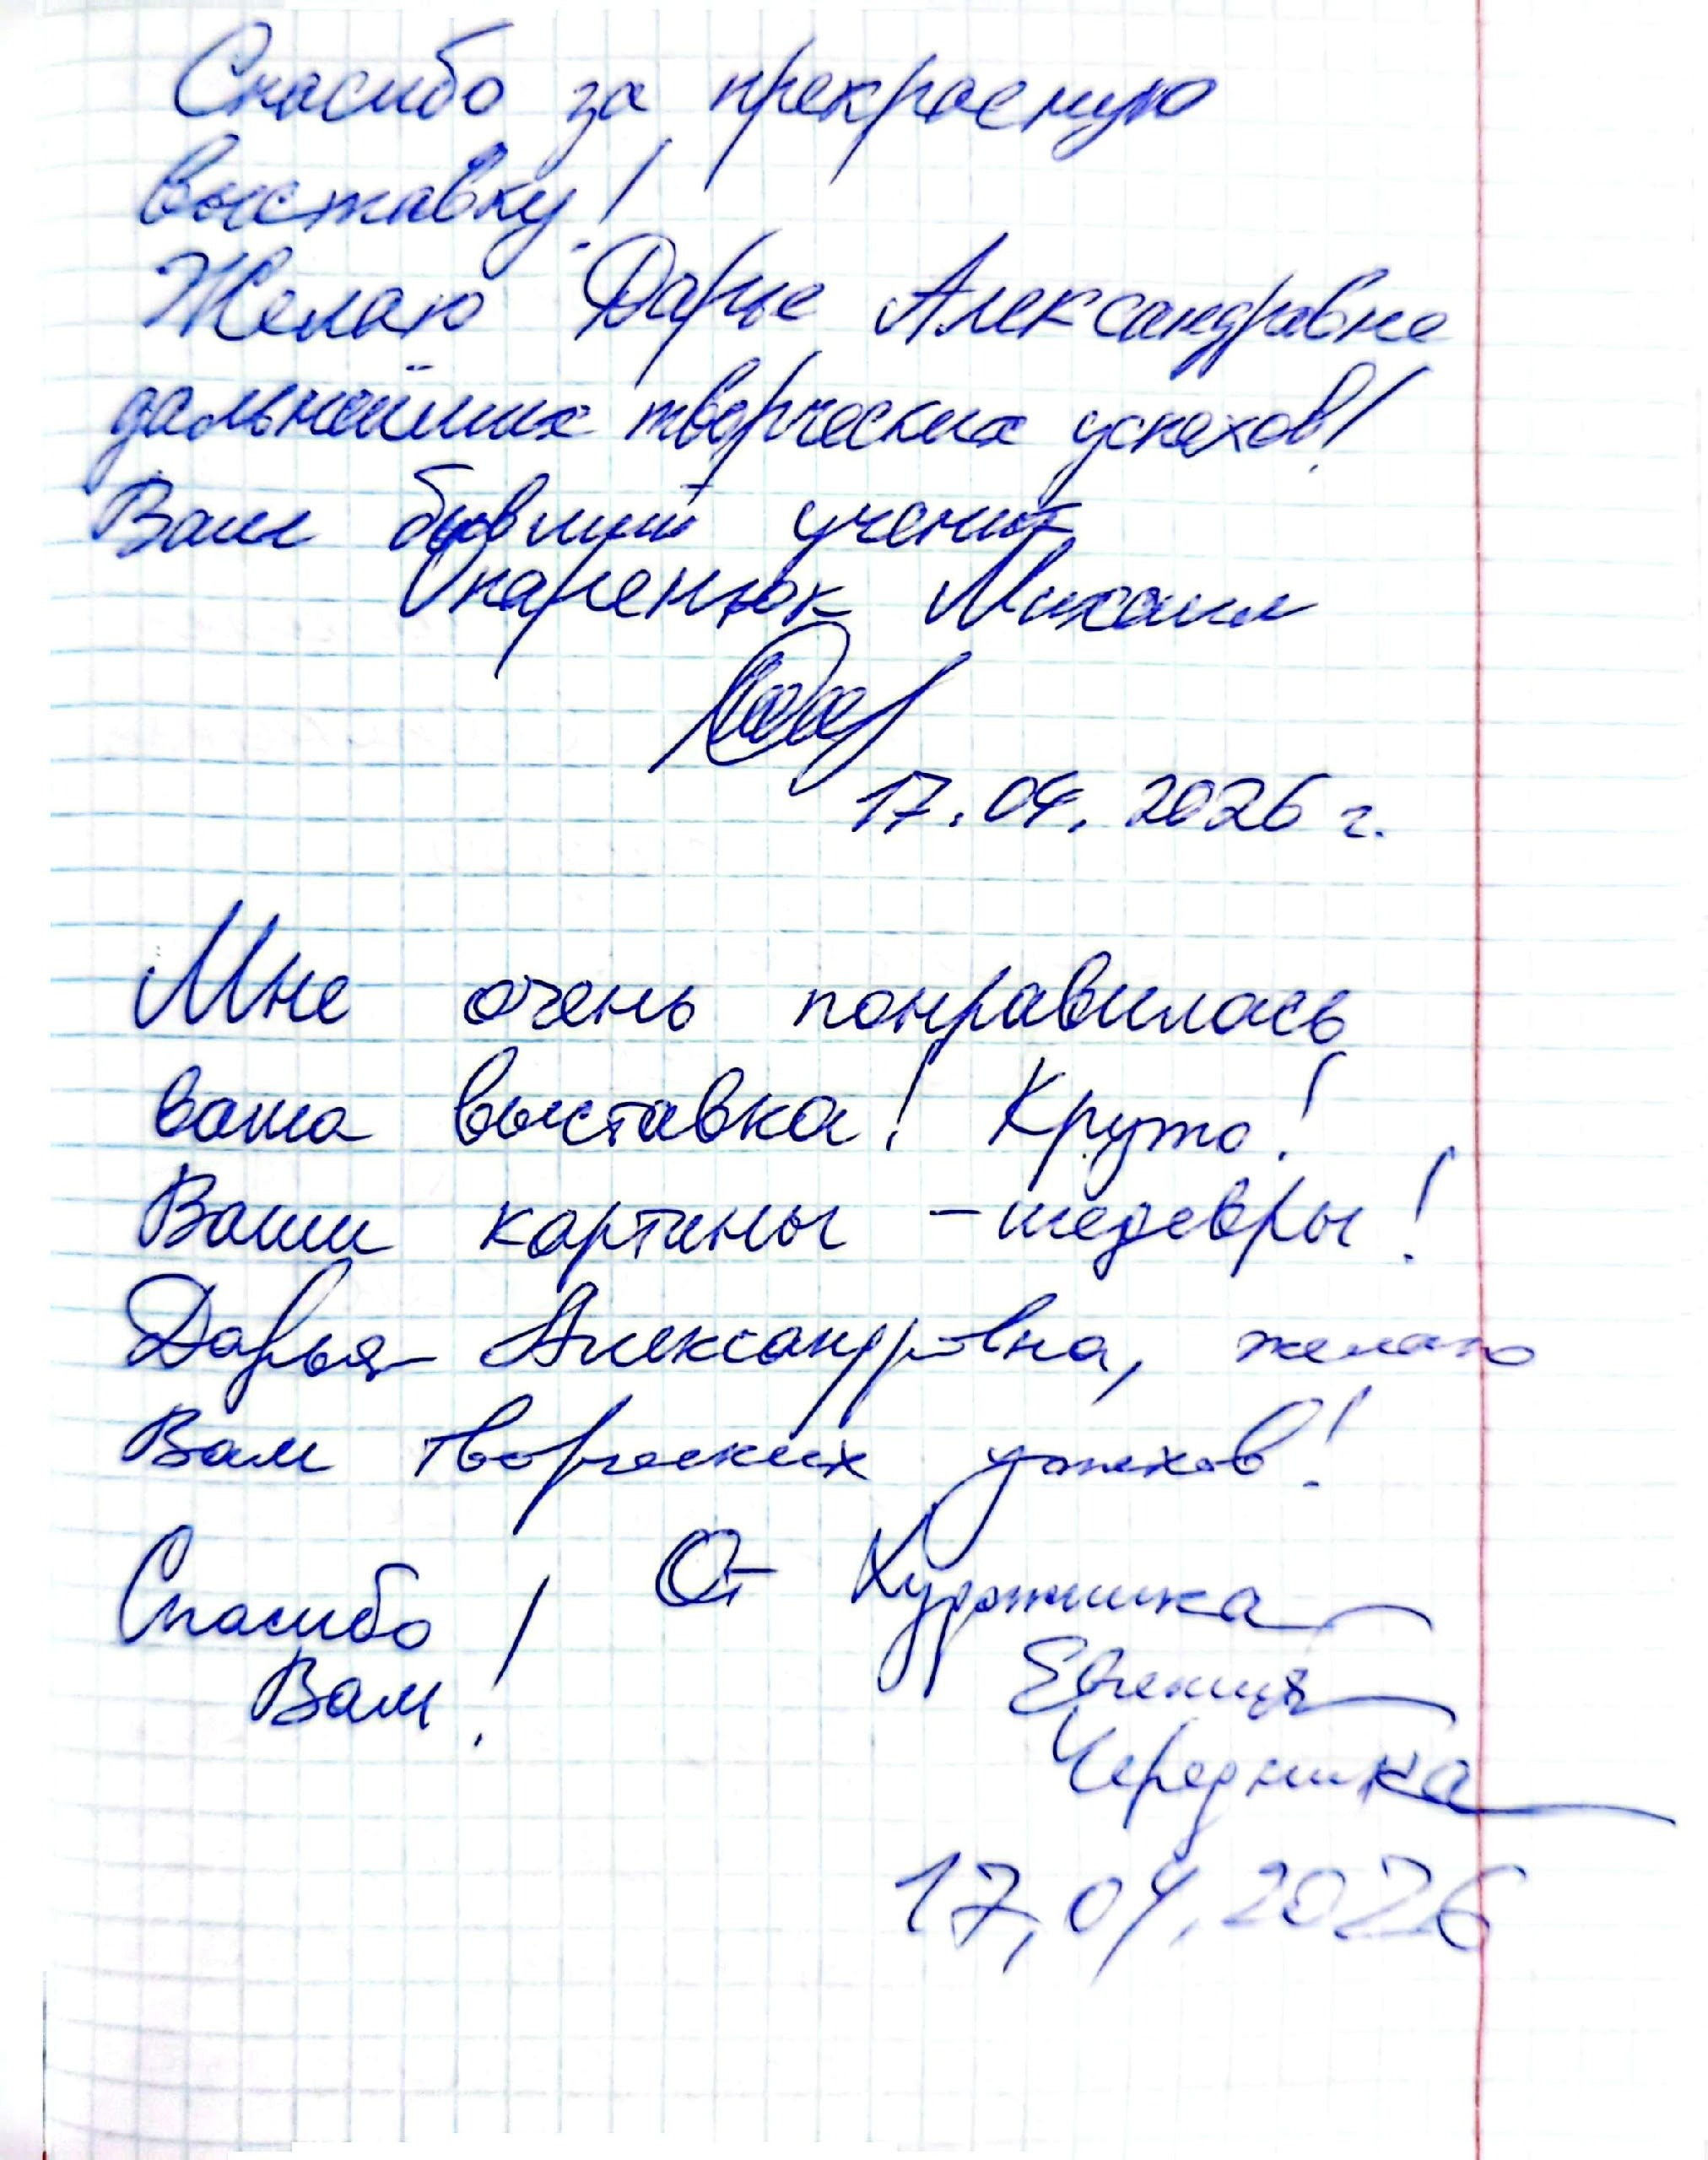 Спасибо за прекрасную
выставку!
Желаю Дарье Александравне
дальнейших творческих успехов!
Ваш бывший ученик
Опаренюк Михаил
17.04.2026 г.
Мне очень понравилась
ваша выставка! Круто!
Ваши картины - шедевры!
Дарья Александровна, желаю
Вам творческих успехов!
Спасибо Вам! От Художника
Евгения
Чередника
17.04.2026